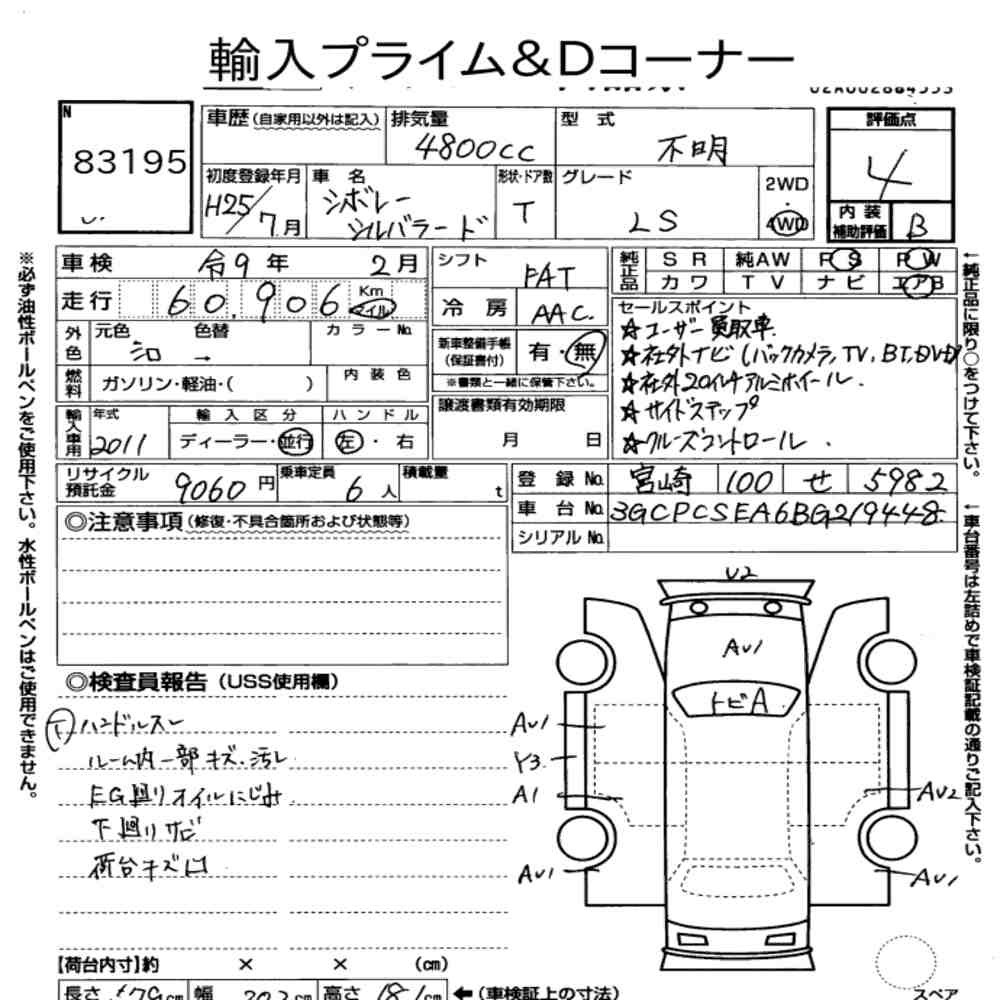 輸入プライム&Dコーナー
N
83195
車歴 (自家用以外は記入)
排気量 4800cc
型式 不明
評価点 4
内装補助評価 B
初度登録年月 H25/7月
車名 シボレー シルバラード
形状・ドア数 T
グレード LS
2WD・4WD
車検 令9年 2月
走行 60,906 Km マイル
シフト FAT
冷房 AAC
純正品 SR 純AW PS PW
カワ TV ナビ エアB
外色 元色 シロ → 色替 カラーNo.
燃料 ガソリン・軽油・( )
内装色
新車整備手帳(保証書付) 有・無
※書類と一緒に保管下さい。
セールスポイント
☆ユーザー買取車.
☆社外ナビ(バックカメラ,TV,BT,DVD)
☆社外20インチアルミホイール.
☆サイドステップ
☆クルーズコントロール.
輸入車用 年式 2011
輸入区分 ディーラー・並行
ハンドル 左・右
譲渡書類有効期限 月 日
リサイクル預託金 9060円
乗車定員 6人
積載量 t
登録No. 宮崎 100 せ 5982
車台No. 3GCPCSEA6BG219448
シリアルNo.
◎注意事項 (修復・不具合箇所および状態等)
◎検査員報告 (USS使用欄)
①ハンドルスレ
ルーム内一部キズ.汚レ
EG廻りオイルにじみ
下廻りサビ
荷台キズ凹
U2
AU1
トビA
AU1
Y3
A1
AU2
AU1
AU1
【荷台内寸】約 × × (cm)
長さ cm 幅 cm 高さ cm ←(車検証上の寸法)
スペア
※必ず油性ボールペンをご使用下さい。水性ボールペンはご使用できません。
←純正品に限り○をつけて下さい。
←車台番号は左詰めで車検証記載の通りご記入下さい。